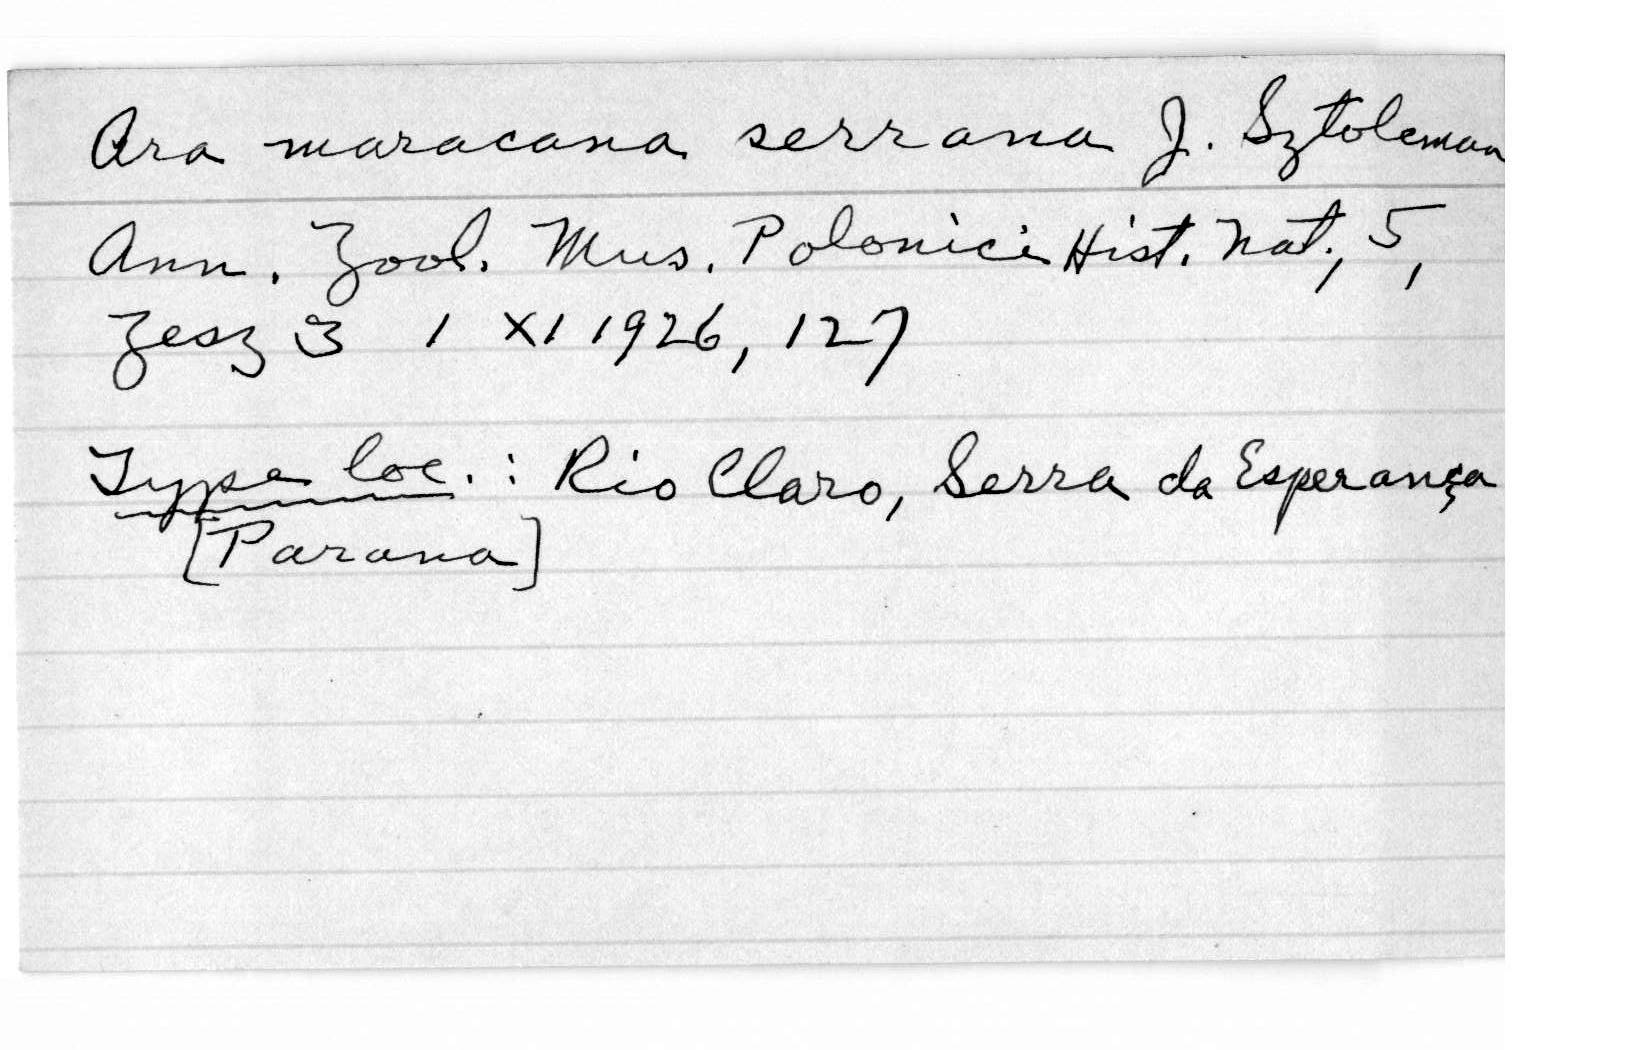 Ara maracana serrana J. Sztolcman
Ann. Zool. Mus. Polonici Hist. Nat., 5,
Zesz 3 1 XI 1926, 127
Type loc.: Rio Claro, Serra da Esperança
[Parana]